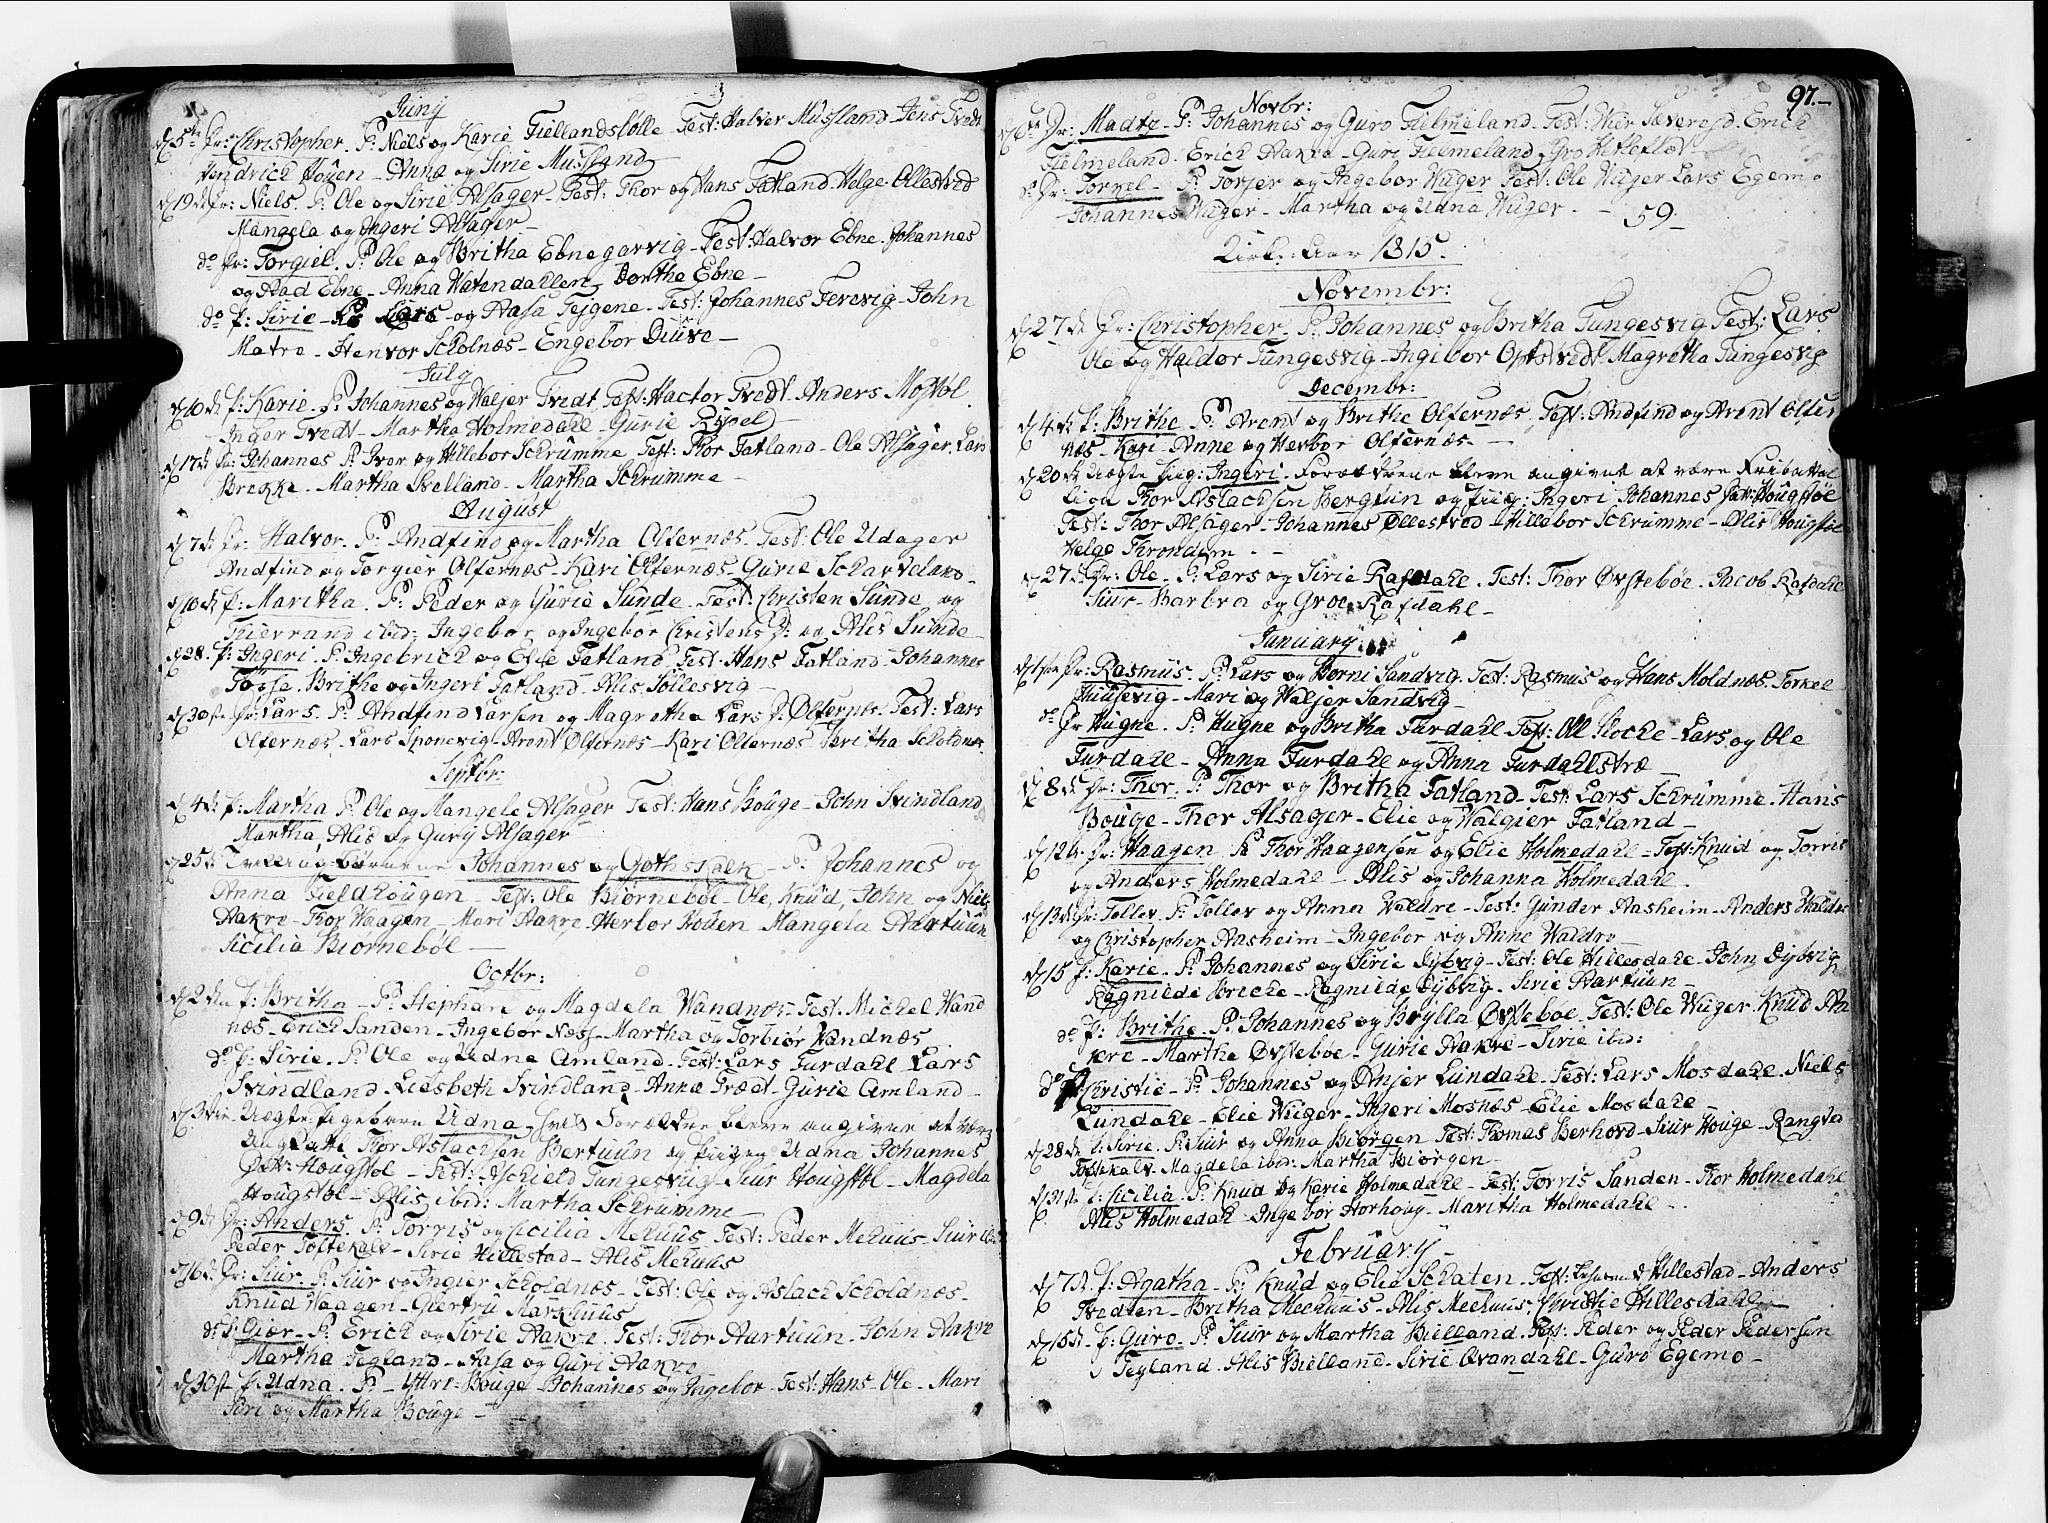 Juny
d 5te Dr: Christopher. P: Niels og Karie Fiellandsbolle Test: Halver Musland Jens Tvedt
Hendrich Höuen - Anna og Sirie Musland
d 19de Dr: Niels. P: Ole og Sirie Alsager - Test: Thor og Hans Fatland Helge Ollestved
Mangela og Ingeri Alsager -
do Dr: Torgiel. P: Ole og Britha Ebnegarvig - Test: Halvor Ebne. Johannes
og Aad Ebne - Anna Watendallen, Dorthe Ebne -
do P: Sirie - P: Lars og Aasa Tejgene - Test: Johannes Ferevig - John
Matre - Henvor Scholnæs - Engebor Diuve -
July
d 10de P: Karie. P: Johannes og Waljer Tvedt Test: Hactor Tvedt. Anders Mostøl
Inger Tvedt - Martha Holmedahl - Gurie
d 17de Dr: Johannes P: Iver og Hillebor Schrumme Test: Thor Fatland - Ole Alsager, Lars
Brekke. Martha Svelland - Martha Schrumme -
August
d 7de Dr: Halvor. P: Andfind og Martha Olfernæs - Test: Ole Udager
Andfind og Torgier Olfernæs - Kari Olfernæs - Gurie Scharveland -
d 10de P: Maritha. P: Peder og Gurie Sunde. Test: Christen Sunde og
Thierrand ibid: Ingebor og Ingebor Christens D: og Alis Sunde -
d 28. P: Ingeri. P: Ingebricht og Elie Fatland Test: Hans Fatland - Johannes
Tosse. Brithe og Ingeri Fatland. Alis Söllesvig -
d 30te Dr: Lars. P: Andfind Larsen og Magretha Lars D: Olfernæs. Test: Lars
Olfernæs. Lars Sponevig - Arent Olfernæs - Kari Olfernæs Britha Scholdnæs
Septbr:
d 4de P: Martha P: Ole og Mangele Alsager Test: Hans Bouge - John Svindland
Martha, Alis og Gury Alsager -
d 25de Tvillingbørnene Johannes og Gothskalk - P: Johannes og
Anna Fieldhougen - Test: Ole Biørnebøe - Ole, Knud, John og Niels
Aakre - Thor Waagen - Mari Aakre Herbor Houen Mangela Aartuun
Sicilia Biornebøe -
Octbr:
d 2den P: Britha - P: Stephan og Magdela Wandnæs - Test: Michel Wand
næs - Erich Sanden - Ingebor Næss - Martha og Torbiør Wandnæs
do P: Sirie. P: Ole og Udna Amland. Test: Lars Furdahl Lars
Svindland - Liesbeth Svindland - Anna Trædt - Gurie Amland -
d 3die Uægte Pigebarn Udna hvis Forældre bleve angivne at være
Ungkarl Thor Aslachsen Bertuun og Pigen Udna Johannes
Dtr: Hougstøl - Test: Aschield Tungesvig - Siur Hougstøl - Magdela
Hougstøl - Alis ibid: Martha Schrumme -
d 9de Dr: Anders. P: Torris og Cicilia Mehuus Test: Peder Mehuus - Siur ibd
Peder Toftekalv - Sirie Hillestad - Alis Mehuus
d 16de Dr: Siur. P: Siur og Ingier Scholdnæs - Test: Ole og Aslach Scholdnæs -
Knud Waagen - Giertru Markhuus
do P: Giør - P: Erich og Sirie Aakre. Test: Thor Aartuun - John Aakre
Martha Tegland - Aasa og Guri Aakre
d 30te P: Udna. P - Uttri: Bouge Johannes og Ingebor - Test: Hans - Ole - Mari
Siri og Martha Bouge -
97. -
Novbr:
d 6te Dr: Madtz - P: Johannes og Guro Fielmeland - Test: Iver Severesd. Erich
Fielmeland - Erich Aakre - Guro Fielmeland - Gro
do Dr: Torkel - P: Torjer og Ingebor Wuger Test: Ole Wuger Lars Egemo
Johannes Wuger - Martha og Udna Wuger. - 59 -
Kirke: Aar 1815.
Novembr:
d 27de Dr: Christopher - P: Johannes og Britha Tungesvig Test: Lars
Ole og Haldor Tungesvig - Ingebor Opstvedt Magretha Tungesvig
Decembr:
d 4de P: Brithe P: Arent og Brithe Olfernæs. Test: Andfind og Arent Olfer
næs - Kari - Anne og Herbor Olfernæs -
d 20de Uægte Pieg: Ingeri. Forældrene bleve angivne at være
Thor Aslachsen Bergtun og Pieg: Ingeri Johannes Datr: Hougstøl
Test: Thor Alsager - Johannes Ollestved - Hillebor Schrumme - Alis Hougstøl
Helge Throndsen. -
d 27de Dr: Ole - P: Lars og Sirie Rafdahl. Test: Thor Øvstebøe. Jacob Rafdahl
Siur - Barbra og Groe Rafdahl -
January
d 1ste Dr: Rasmus. P: Lars og Borni Sandvig. Test: Rasmus og Hans Moldnæs. Torkel
Thiusevig - Mari og Waljer Sandvig -
do Dr Hugne. P: Hugne og Britha Furdahl - Test: Oll Stoche - Lars og Ole
Furdahl - Anna Furdahl og Anna Furdahlstræ
d 8de Dr: Thor. P: Thor og Britha Fatland - Test: Lars Schrumme. Hans
Bouge - Thor Alsager - Elie og Walgier Fatland -
d 12te Dr: Haagen P: Thor Haagensen og Elie Holmedahl - Test: Knud og Torris
og Anders Holmedahl - Alis og Johanna Holmedahl.
d 13de Dr: Tollev. P: Tollev og Anna Waldre - Test: Gunder Aasheim - Anders Waldre
og Christopher Aasheim - Ingebor og Anne Waldre
d 15 P: Karie. P: Johannes og Sirie Dybvig - Test: Ole Hillesdahl - John Dybvig
Ragnilde Briche - Ragnilde Dybvig. Sirie Aartuun -
do P: Brithe. P: Johannes og Sylla Øvstebøe. Test: Ole Wuger - Knud Aa
kre - Martha Øvstebøe - Gurie Aakre - Sirie ibid:
do P: Christie - P: Johannes og Anjer Lundahl - Test: Lars Mosdahl. Niels
Lundahl - Elie Wuger - Ingeri Mosnæs - Elie Mosdahl -
d 28de P: Sirie. P: Siur og Anna Biörgen - Test: Thomas Berhord - Siur Houge - Rangved
Toftekalv. Magdela ibid: Martha Biörgen -
d 31te P: Cicilia. P: Knud og Karie Holmedahl - Test: Torris Sanden - Thor Holmedahl
Alis Holmedahl - Ingebor Horhoug - Maritha Holmedahl - .
February -
d 7de P: Agatha - P: Knud og Elie Schaten. Test: Hillestad - Anders
Tvedten - Britha Meehuus - Alis Meehuus. Christie Hillesdahl -
d 15de P: Guro - P: Siur og Martha Bielland. Test: Peder og Peder Pedersen
Tegland. Alis Bielland - Sirie Qvandahl - Guro Egemo -